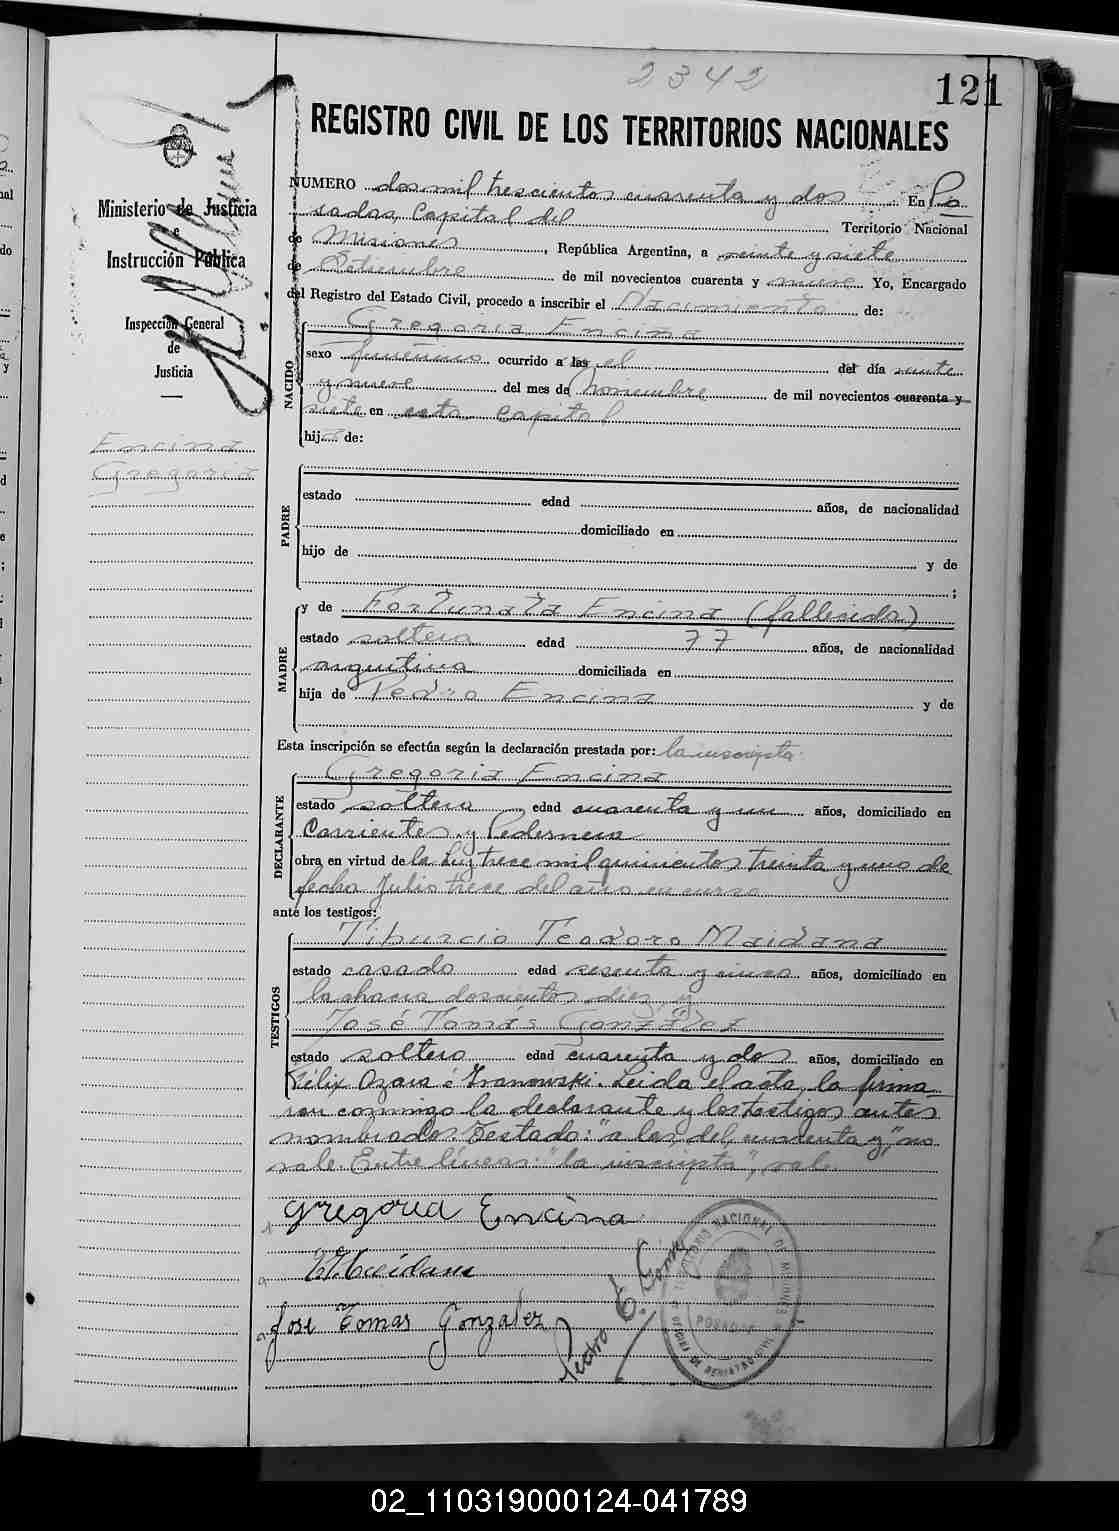 2342
121
REGISTRO CIVIL DE LOS TERRITORIOS NACIONALES
Ministerio de Justicia
e
Instrucción Pública
Inspección General
de
Justicia
Encina
Gregoria
NUMERO dos mil trescientos cuarenta y dos En Po
sadas, Capital del Territorio Nacional
de Misiones, República Argentina, a veinte y siete
de Setiembre de mil novecientos cuarenta y nueve Yo, Encargado
del Registro del Estado Civil, procedo a inscribir el Nacimiento de:
NACIDO
Gregoria Encina
sexo femenino ocurrido a las el del día veinte
y nueve del mes de Noviembre de mil novecientos cuarenta y
siete en esta capital
hija de:
PADRE
estado edad años, de nacionalidad
domiciliado en
hijo de y de
;
MADRE
y de Fortunata Encina (fallecida)
estado soltera edad 77 años, de nacionalidad
argentina domiciliada en
hija de Pedro Encina y de
Esta inscripción se efectúa según la declaración prestada por: la inscripta
DECLARANTE
Gregoria Encina
estado soltera edad cuarenta y un años, domiciliado en
Corrientes y Pedernera
obra en virtud de la Ley trece mil quinientos treinta y uno de
fecha Julio trece del año en curso
ante los testigos:
TESTIGOS
Tiburcio Teodoro Maidana
estado casado edad sesenta y cinco años, domiciliado en
la chacra doscientos diez y
José Tomás González
estado soltero edad cuarenta y dos años, domiciliado en
Félix Azara é Ivanowski. Leida el acta, la firma
ron conmigo la declarante y los testigos antes
nombrados. Testado: "a las, del, cuarenta y," no
vale. Entre líneas: "la inscripta", vale.
Gregoria Encina
T. T. Maidana
José Tomas Gonzalez
Pedro E. Gómez
TERRITORIO NACIONAL DE MISIONES
POSADAS
OFICINA DE REGISTRO CIVIL
02_110319000124-041789